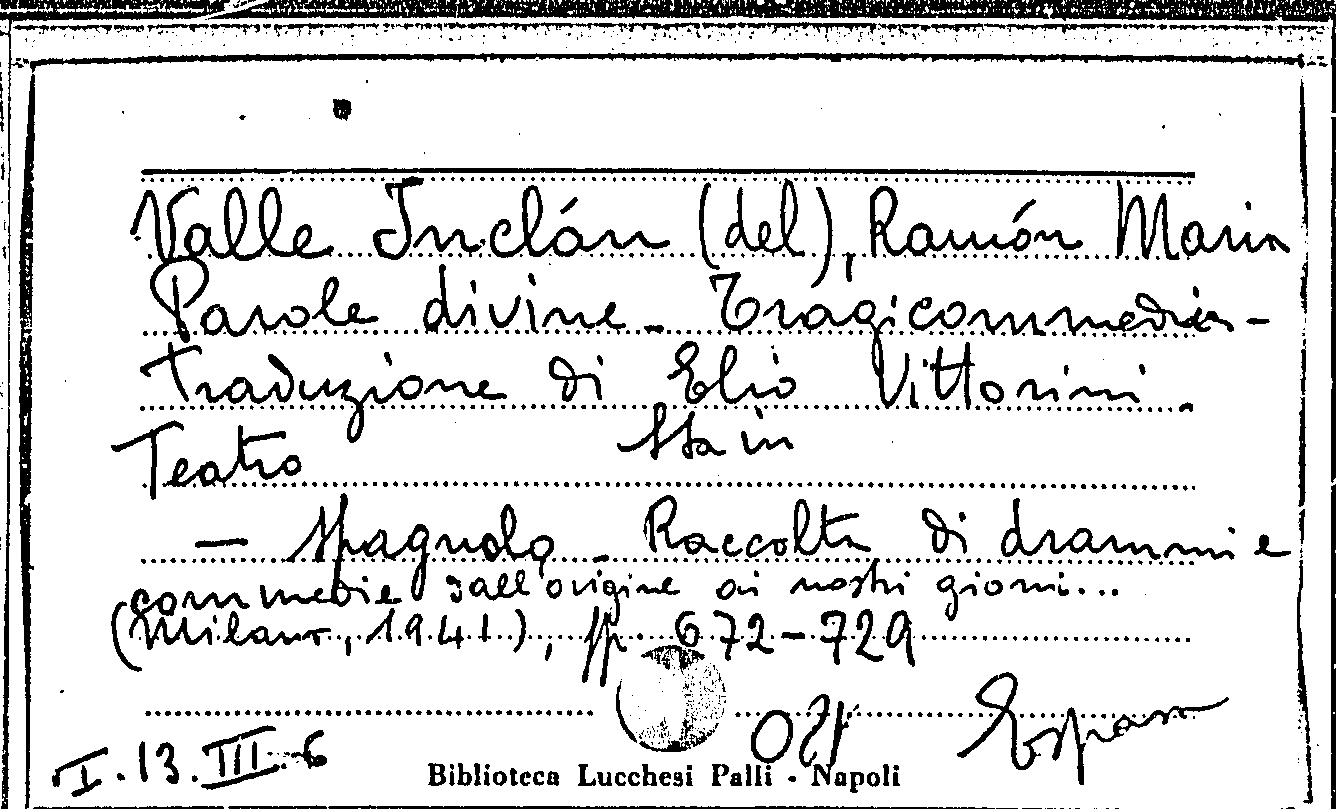 Valle Inclán (del), Ramón Maria
Parole divine. Tragicommedia-
Traduzione di Elio Vittorini.
Sta in
Teatro
— spagnolo. Raccolta di drammi e
commedie dall'origine ai nostri giorni...
(Milano, 1941), pp. 672-729
I.13.III.6
Biblioteca Lucchesi Palli - Napoli